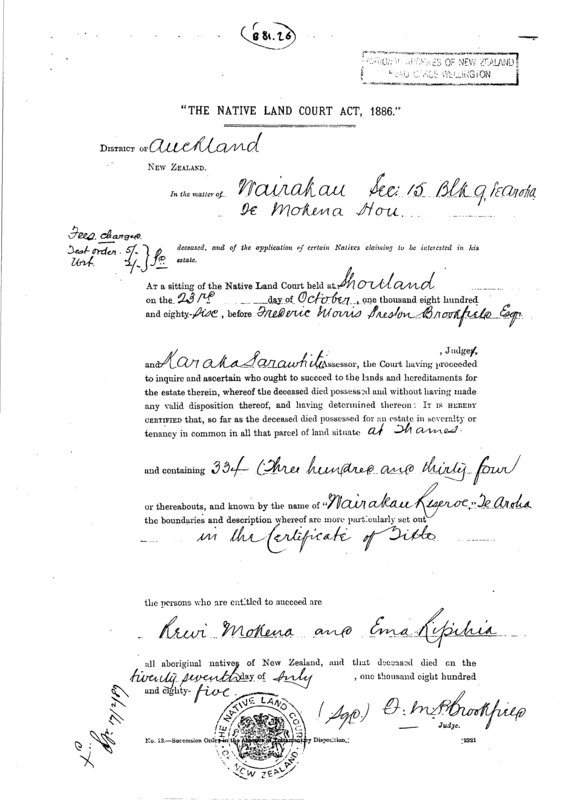 B 81.26
NATIONAL ARCHIVES OF NEW ZEALAND
HEAD OFFICE WELLINGTON
"THE NATIVE LAND COURT ACT, 1886."
DISTRICT OF Auckland
NEW ZEALAND.
In the matter of Wairakau Sec: 15 Blk 9, Te Aroha
Te Mokena Hou
Fees charged
Test order. 5/-
deceased, and of the application of certain Natives claiming to be interested in his
estate.
AT a sitting of the Native Land Court held at Shortland
on the 23rd day of October, one thousand eight hundred
and eighty-six, before Frederic Morris Preston Brookfield Esq.
, Judge,
and Karaka Tarawhiti Assessor, the Court having proceeded
to inquire and ascertain who ought to succeed to the lands and hereditaments for
the estate therein, whereof the deceased died possessed and without having made
any valid disposition thereof, and having determined thereon: IT IS HEREBY
CERTIFIED that, so far as the deceased died possessed for an estate in severalty or
tenancy in common in all that parcel of land situate at Thames.
and containing 334 (Three hundred and thirty four)
or thereabouts, and known by the name of "Wairakau Reserve," Te Aroha
the boundaries and description whereof are more particularly set out
in the Certificate of Title
the persons who are entitled to succeed are
Rewi Mokena and Ema Ripihia
all aboriginal natives of New Zealand, and that deceased died on the
twenty seventh day of July, one thousand eight hundred
and eighty-five.
(Sgd) F. M. P. Brookfield
Judge.
THE NATIVE LAND COURT OF NEW ZEALAND
No. 12.—Succession Order in the Absence of Testamentary Disposition.]
[2321